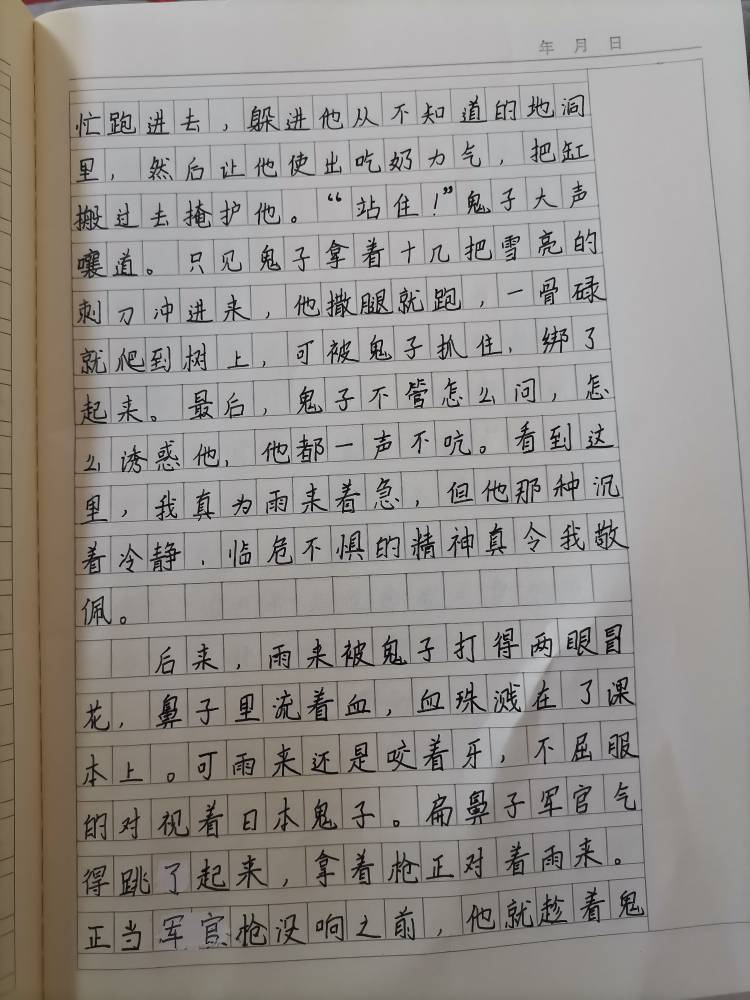 年 月 日
忙跑进去，躲进他从不知道的地洞
里，然后让他使出吃奶力气，把缸
搬过去掩护他。“站住！”鬼子大声
嚷道。只见鬼子拿着十几把雪亮的
刺刀冲进来，他撒腿就跑，一骨碌
就爬到树上，可被鬼子抓住，绑了
起来。最后，鬼子不管怎么问，怎
么诱惑他，他都一声不吭。看到这
里，我真为雨来着急，但他那种沉
着冷静．临危不惧的精神真令我敬
佩。
后来，雨来被鬼子打得两眼冒
花，鼻子里流着血，血珠溅在了课
本上。可雨来还是咬着牙，不屈服
的对视着日本鬼子。扁鼻子军官气
得跳了起来，拿着枪正对着雨来。
正当军官枪没响之前，他就趁着鬼